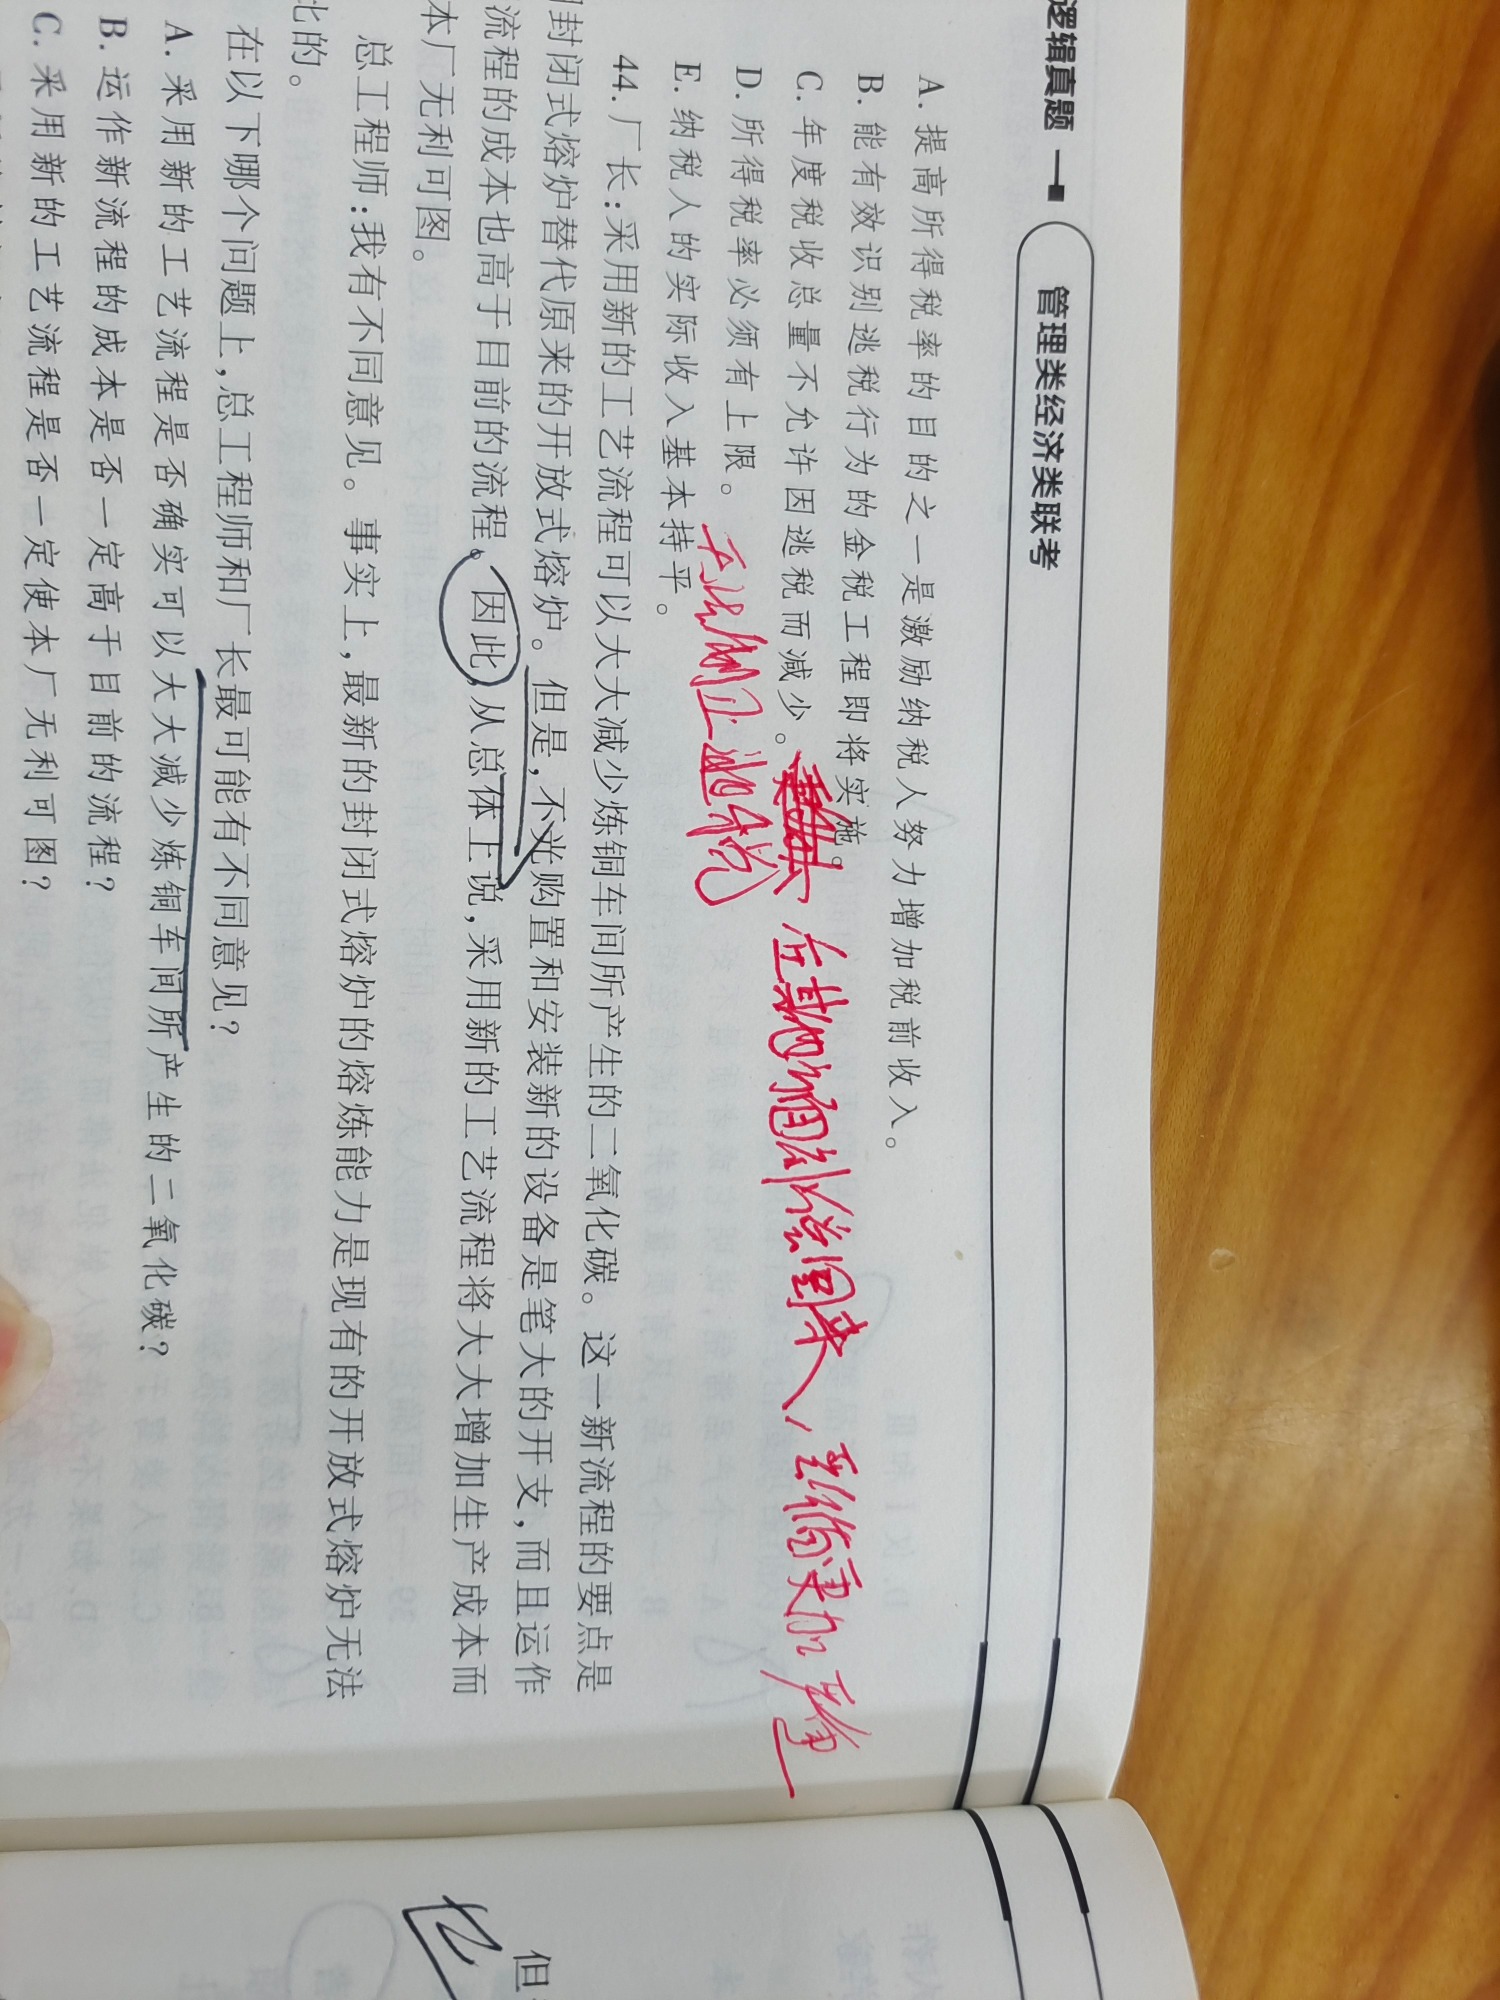 逻辑真题
管理类经济类联考
A. 提高所得税率的目的之一是激励纳税人努力增加税前收入。
B. 能有效识别逃税行为的金税工程即将实施。
C. 年度税收总量不允许因逃税而减少。
在其他方面补偿回来，
D. 所得税率必须有上限。
E. 纳税人的实际收入基本持平。
44. 厂长:采用新的工艺流程可以大大减少炼铜车间所产生的二氧化碳。这一新流程的要点是
封闭式熔炉替代原来的开放式熔炉。但是,不光购置和安装新的设备是笔大的开支,而且运作
流程的成本也高于目前的流程。因此,从总体上说,采用新的工艺流程将大大增加生产成本而
本厂无利可图。
总工程师:我有不同意见。事实上,最新的封闭式熔炉的熔炼能力是现有的开放式熔炉无法
比的。
在以下哪个问题上,总工程师和厂长最可能有不同意见?
A. 采用新的工艺流程是否确实可以大大减少炼铜车间所产生的二氧化碳?
B. 运作新流程的成本是否一定高于目前的流程?
C. 采用新的工艺流程是否一定使本厂无利可图?
但